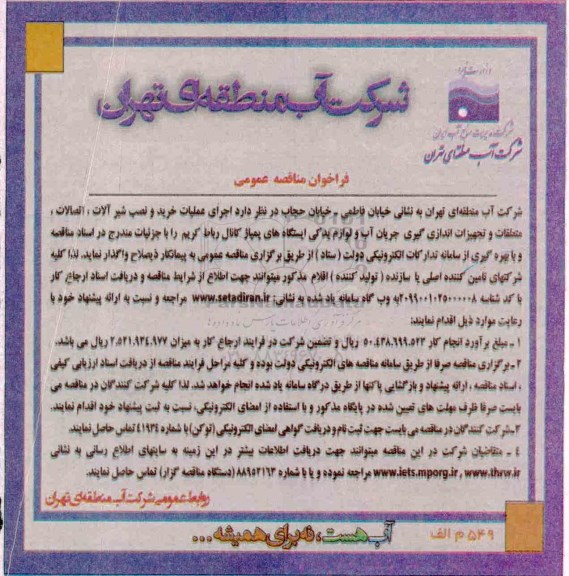 وزارت نیرو
شرکت مدیریت منابع آب ایران
شرکت آب منطقه‌ای تهران
شرکت آب منطقه‌ای تهران
فراخوان مناقصه عمومی
شرکت آب منطقه‌ای تهران به نشانی خیابان فاطمی - خیابان حجاب در نظر دارد اجرای عملیات خرید و نصب شیر آلات ، اتصالات ،
متعلقات و تجهیزات اندازی گیری جریان آب و لوازم یدکی ایستگاه های پمپاژ کانال رباط کریم را با جزئیات مندرج در اسناد مناقصه
و با بهره گیری از سامانه تدارکات الکترونیکی دولت ( ستاد ) از طریق برگزاری مناقصه عمومی به پیمانکار ذیصلاح واگذار نماید. لذا کلیه
شرکتهای تامین کننده اصلی یا سازنده ( تولید کننده ) اقلام مذکور میتوانند جهت اطلاع از شرایط مناقصه و دریافت اسناد ارجاع کار
با کد شناسه ۲۰۹۹۰۰۱۰۲۵۰۰۰۰۰۸ به وب گاه سامانه یاد شده به نشانی: www.setadiran.ir مراجعه و نسبت به ارائه پیشنهاد خود با
رعایت موارد ذیل اقدام نمایند:
۱ - مبلغ برآورد انجام کار ۵۰.۴۳۸.۹۹۹.۵۲۳ ریال و تضمین شرکت در فرایند ارجاع کار به میزان ۲.۵۲۱.۹۳۴.۹۷۷ ریال می باشد.
۲- برگزاری مناقصه صرفا از طریق سامانه مناقصه های الکترونیکی دولت بوده و کلیه مراحل فرایند مناقصه از دریافت اسناد ارزیابی کیفی
، اسناد مناقصه ، ارائه پیشنهاد و بازگشایی پاکتها از طریق درگاه سامانه یاد شده انجام خواهد شد. لذا کلیه شرکت کنندگان در مناقصه می
بایست صرفا ظرف مهلت های تعیین شده در پایگاه مذکور و با استفاده از امضای الکترونیکی، نسبت به ثبت پیشنهاد خود اقدام نمایند.
۳- شرکت کنندگان در مناقصه می بایست جهت ثبت نام و دریافت گواهی امضای الکترونیکی (توکن) با شماره ۴۱۹۳۴ تماس حاصل نمایند.
٤ - متقاضیان شرکت در این مناقصه میتوانند جهت دریافت اطلاعات بیشتر در این زمینه به سایتهای اطلاع رسانی به نشانی
www.iets.mporg.ir , www.thrw.ir مراجعه نموده و یا با شماره ۸۸۹۵۲۱۹۳ (دستگاه مناقصه گزار) تماس حاصل نمایند.
روابط عمومی شرکت آب منطقه‌ای تهران
۵۴۹ م الف
آب هست، نه برای همیشه ...